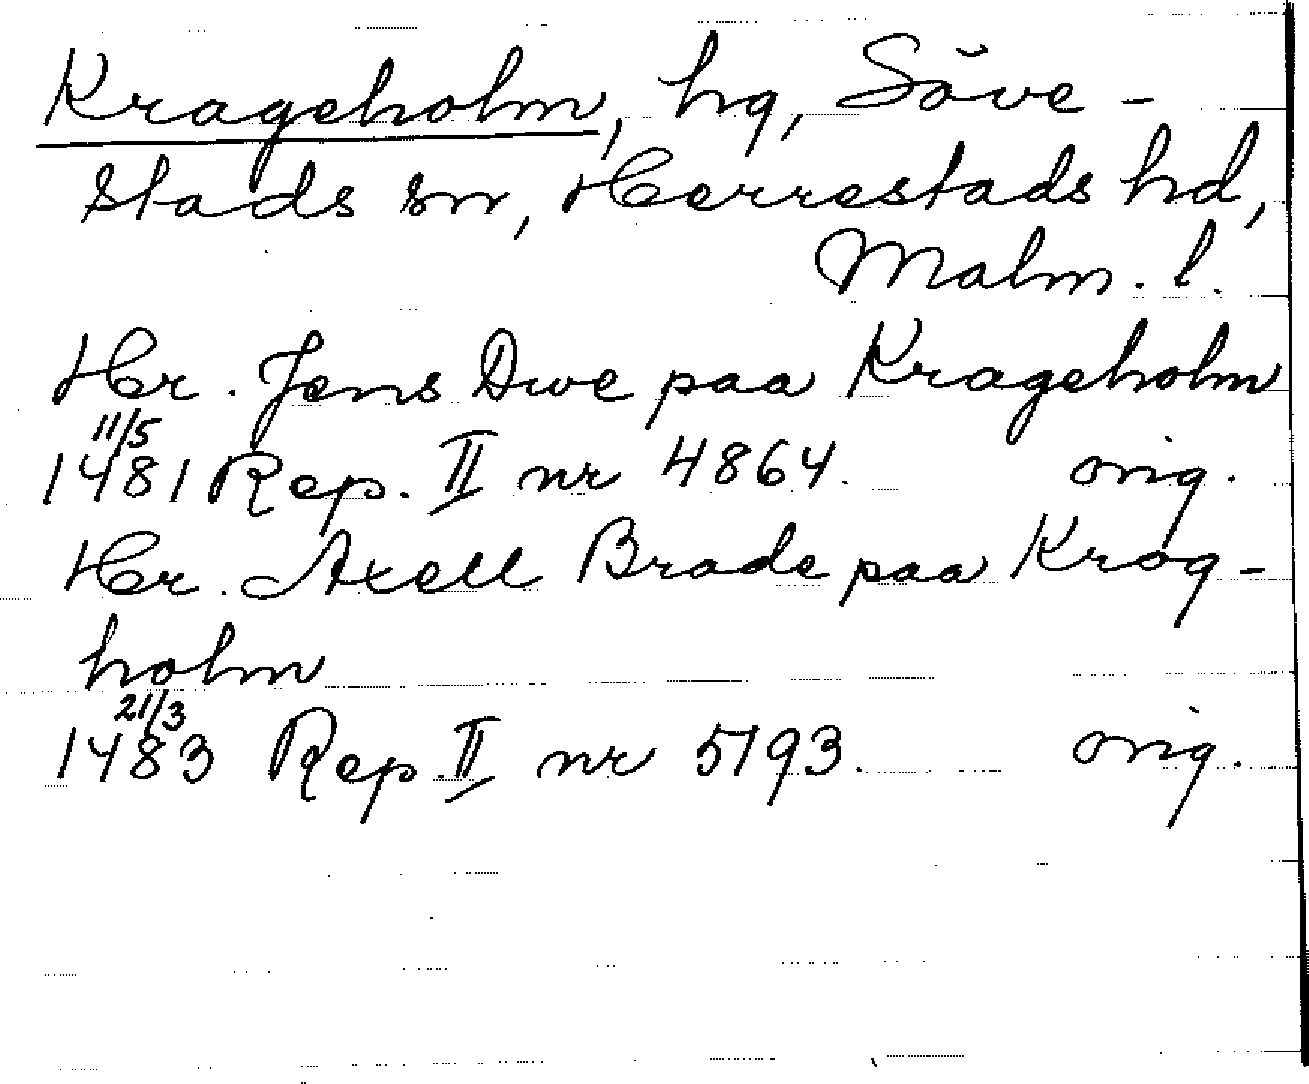 Krageholm, hg, Söve-
stads sn, Herrestads hd,
Malm. l.
Hr. Jens Dwe paa Krageholm
11/5
1481 Rep. II nr 4864. orig.
Hr. Axell Brade paa Krog-
holm
21/3
1483 Rep. II nr 5193. orig.